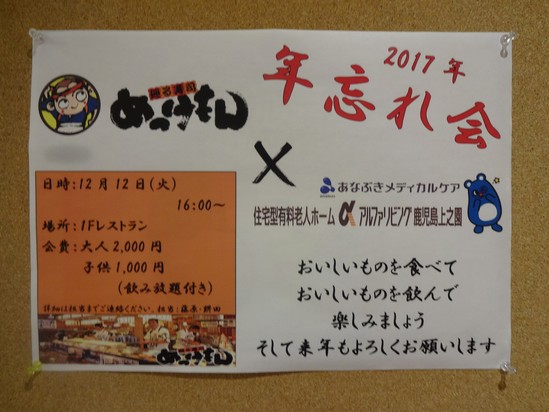 2017年
年忘れ会
廻る寿司
めっけもん
×
あなぶきメディカルケア
住宅型有料老人ホーム アルファリビング鹿児島上之園
日時:12月12日(火)
16:00～
場所:1Fレストラン
会費:大人2,000円
子供1,000円
(飲み放題付き)
詳細は担当までご連絡ください。担当:藤原・餅田
めっけもん
おいしいものを食べて
おいしいものを飲んで
楽しみましょう
そして来年もよろしくお願いします